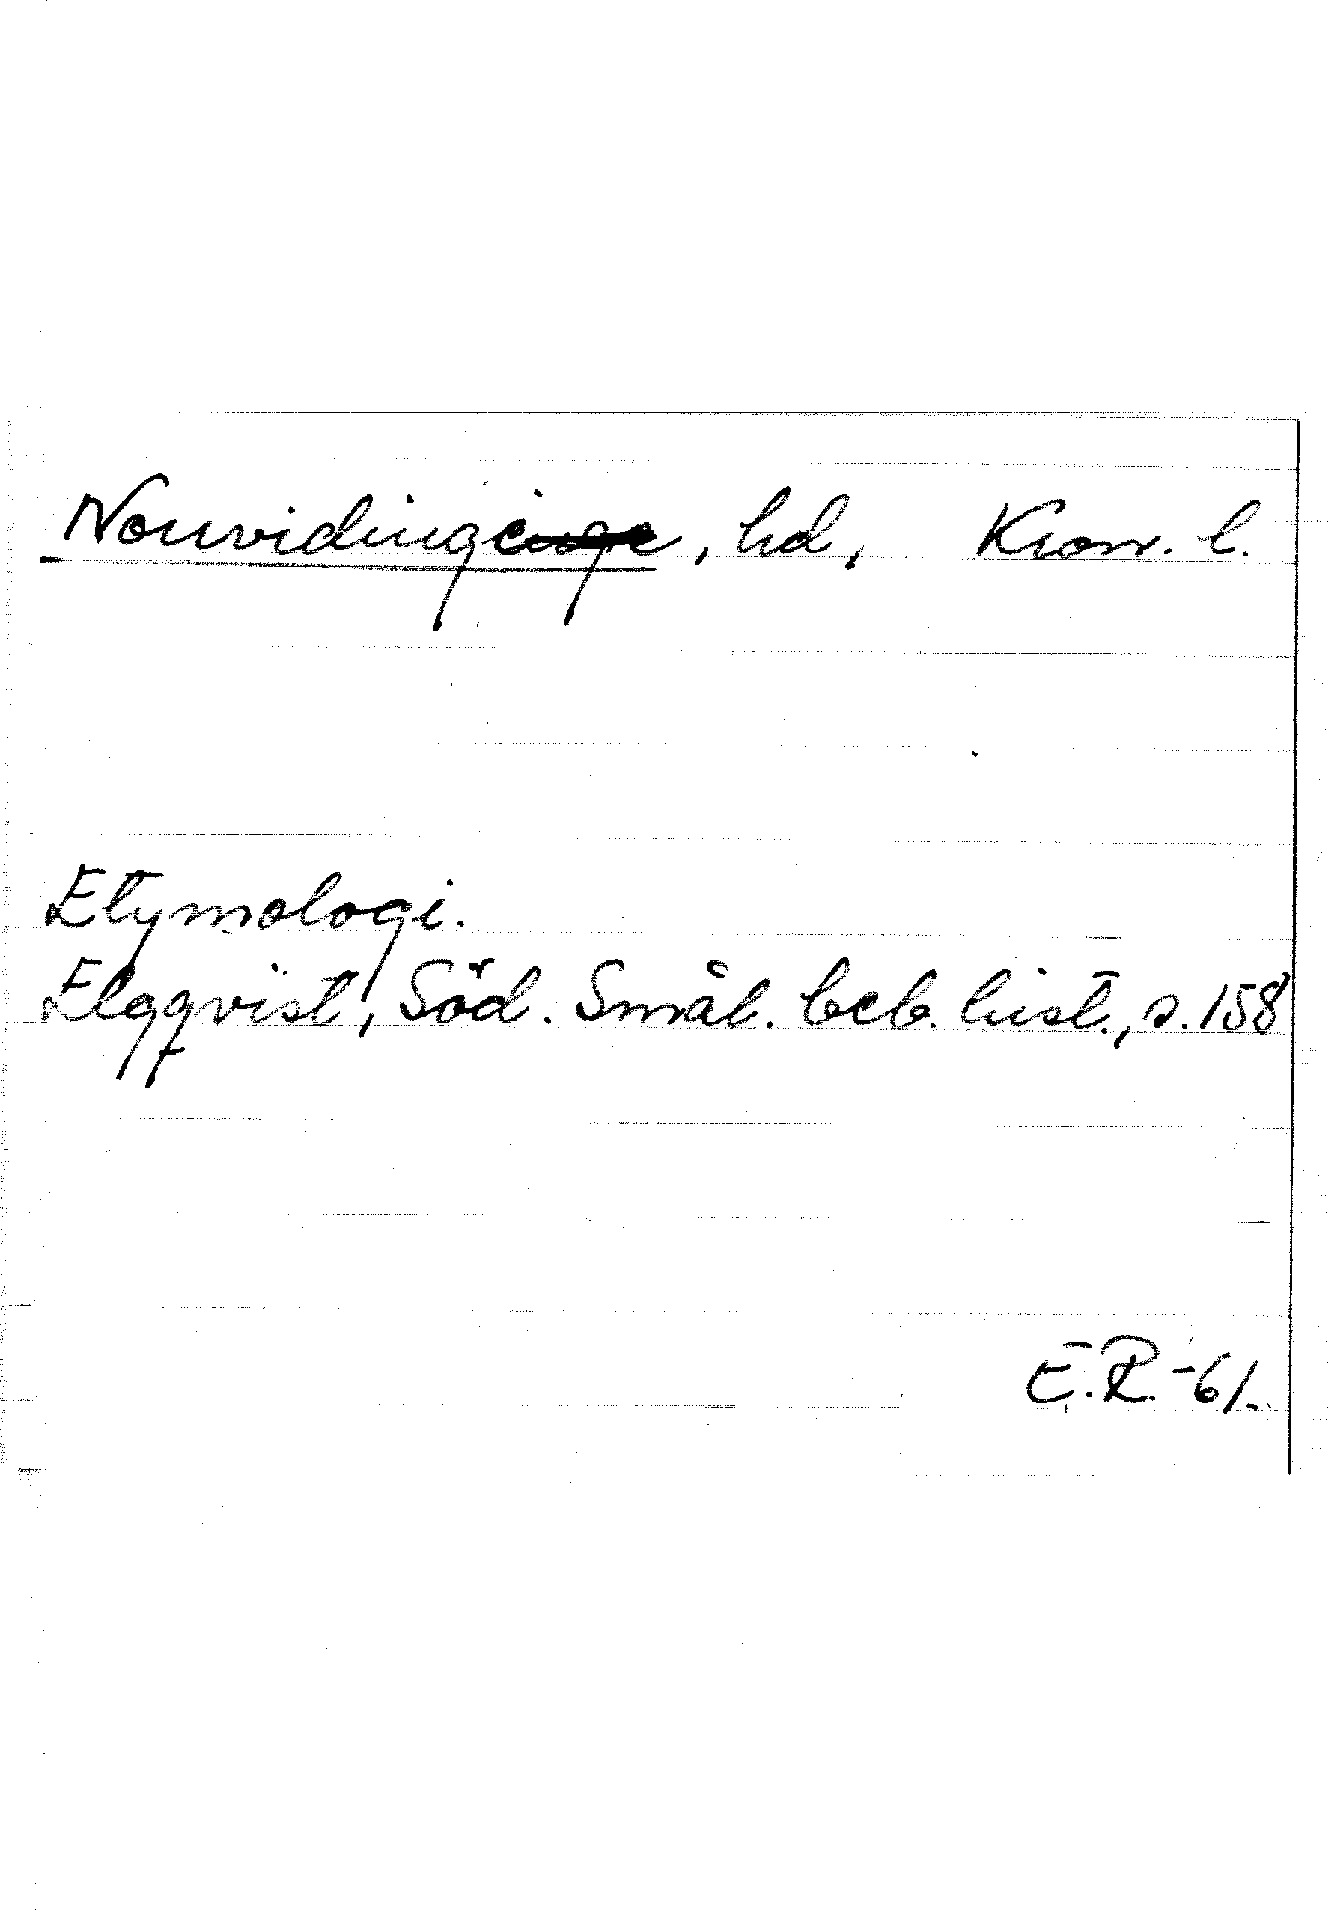 Norrvidinge, hd, Kron. l.
Etymologi.
Elgqvist, Söd. Smål. beb. hist., s. 158
E.R. -61.